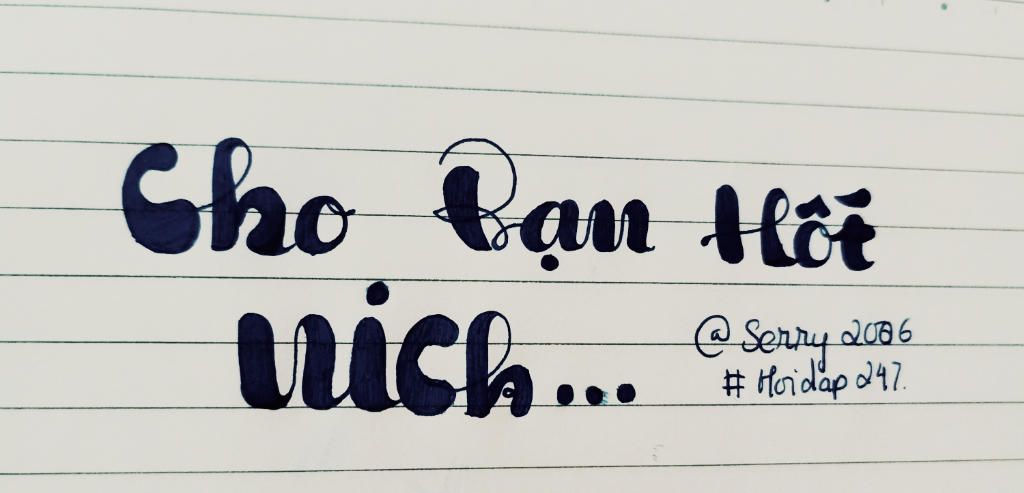 Cho Bạn Hốt
nich...
@ Serry 2006
# Hoidap 247.